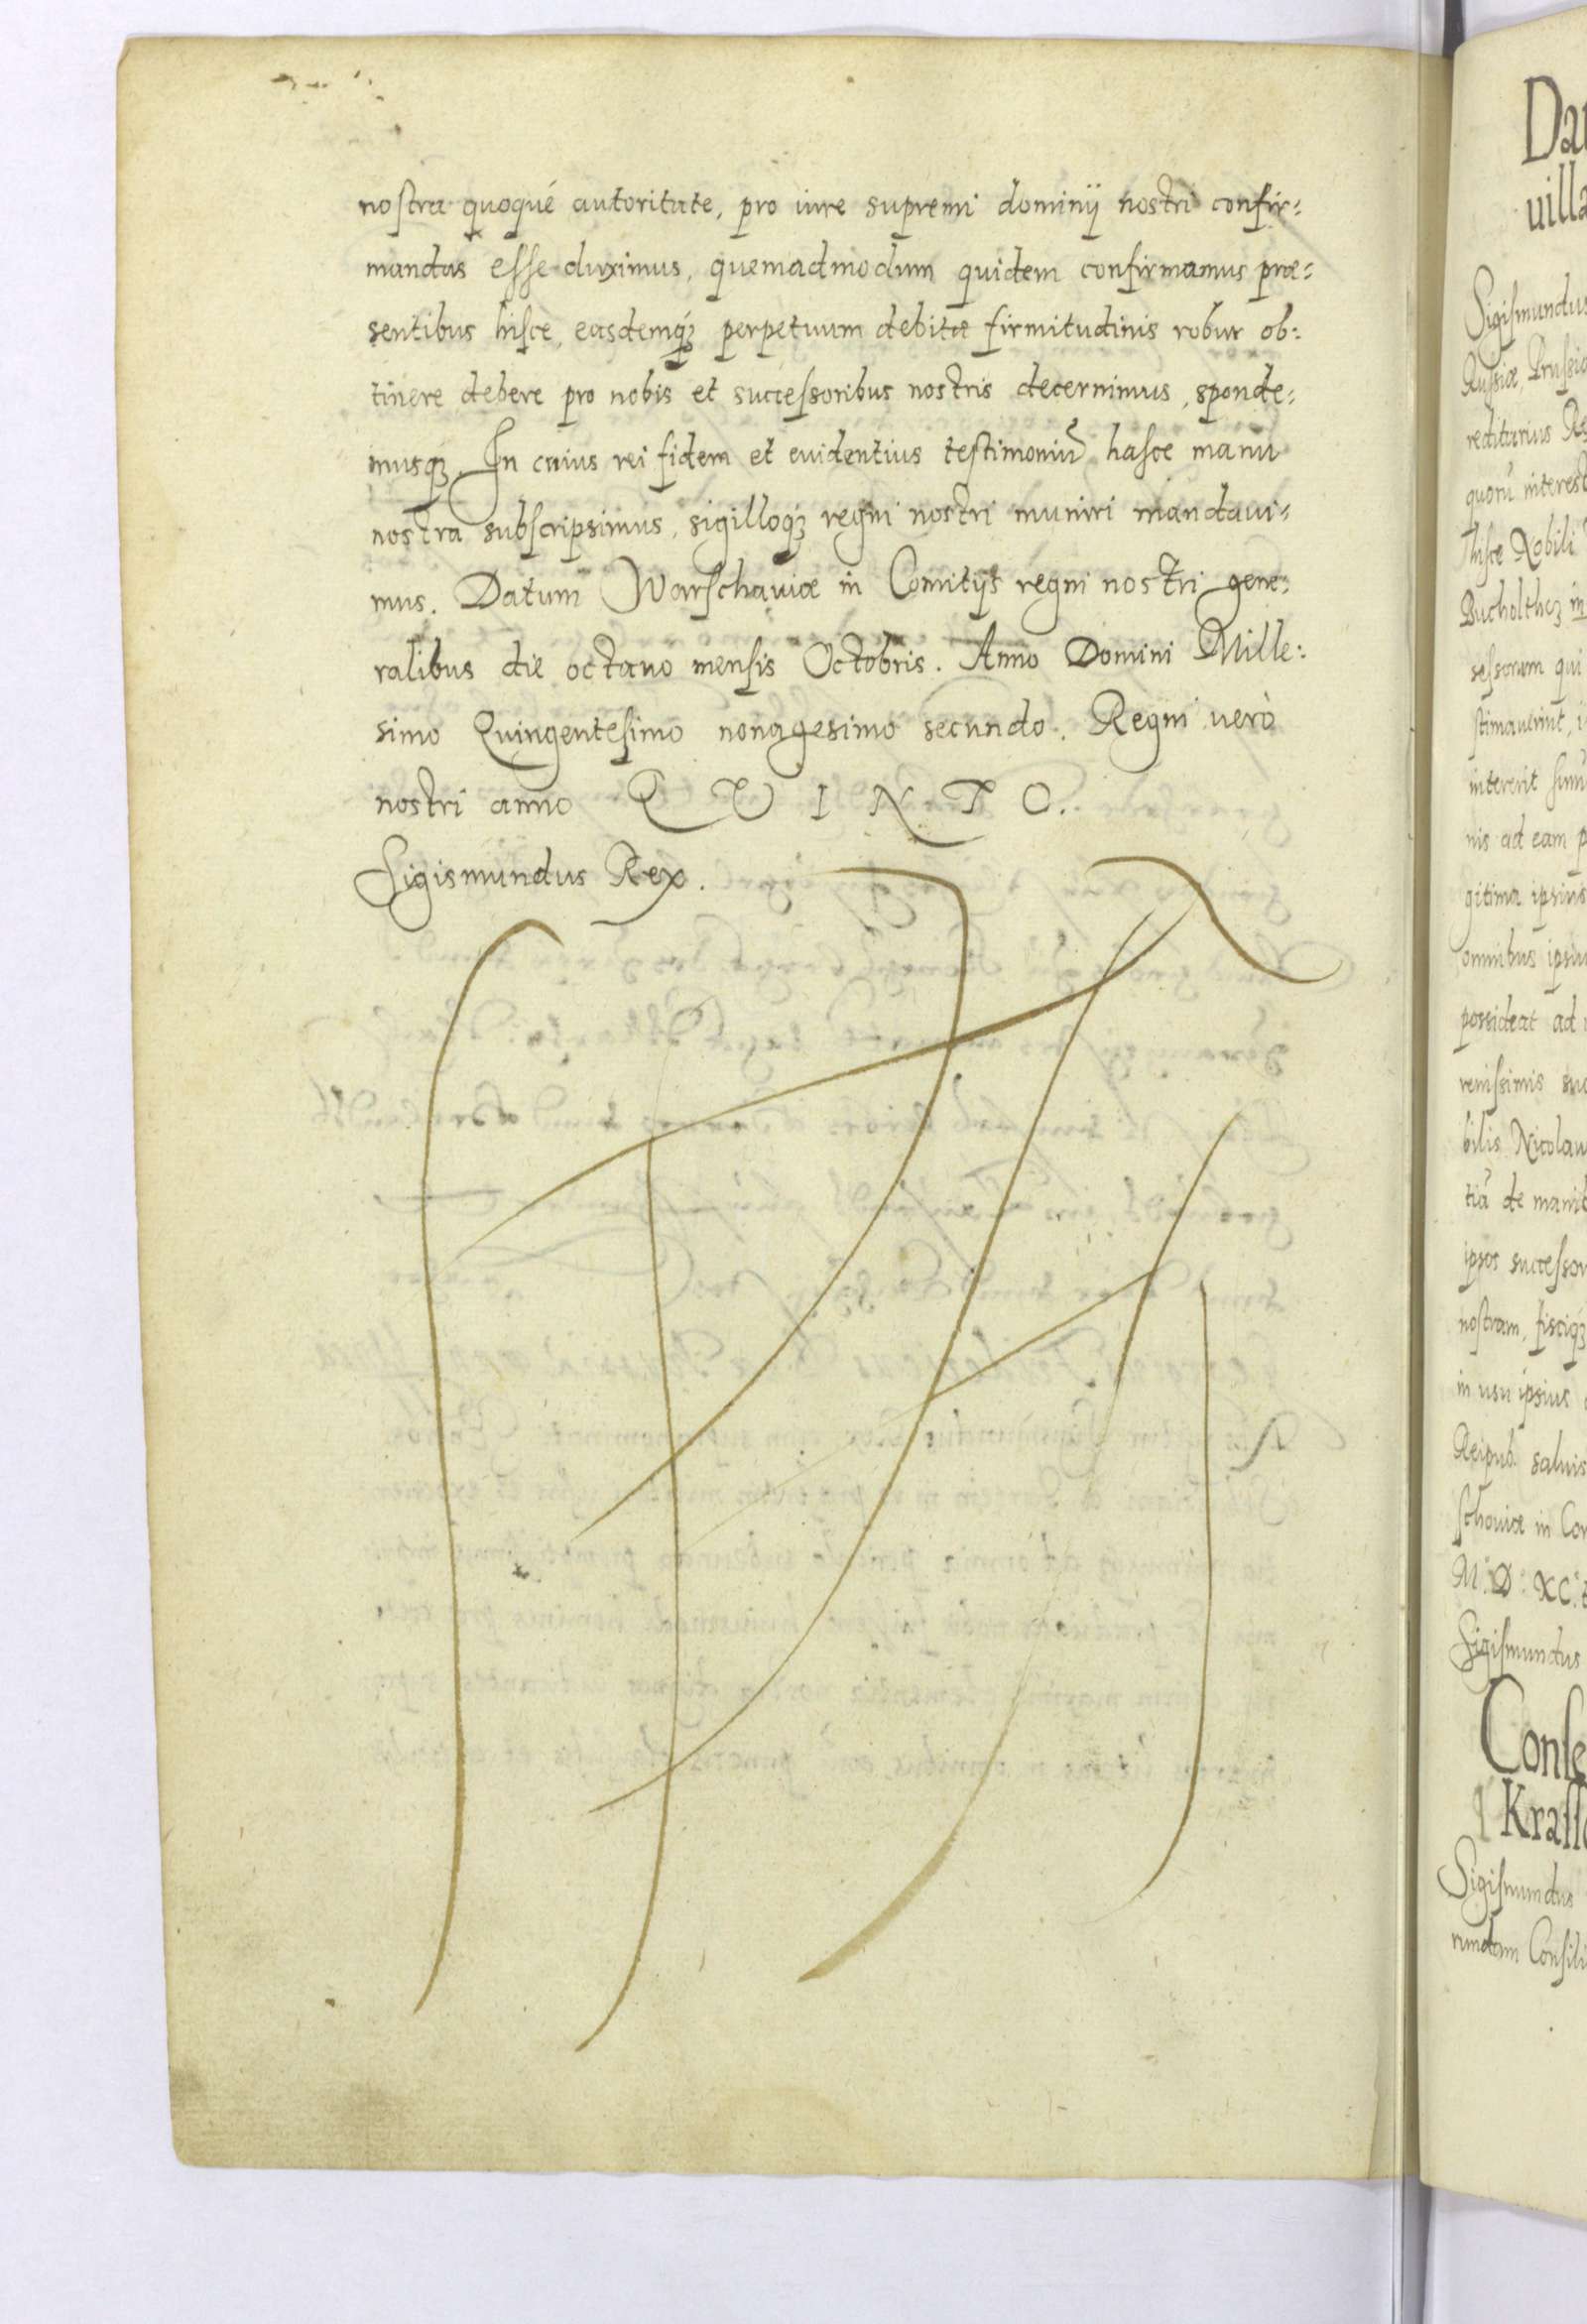 nostra quoqué autoritate, pro iure supremi dominÿ nostri confir=
mandas esse duximus, quemadmodum quidem confirmamus præ=
sentibus hisce, easdemqꝫ perpetuum debitæ firmitudinis robur ob:
tinere debere pro nobis et successoribus nostris decernimus, sponde=
musqꝫ. In cuius rei fidem et euidentius testimoniũ hasce manu
nostra subscripsimus, sigilloqꝫ regni nostri muniri mandaui=
mus. Datum Warschauiæ in Comitÿs regni nostri gene=
ralibus die octauo mensis Octobris. Anno Domini Mille:
simo Quingentesimo nonagesimo secundo. Regni verò
nostri anno Q U I N T O.
Sigismundus Rex.
uilla
Sigismundus
Russiæ, Prussiæ
reditarius
quorũ interest
hisce Nobili
Bucholthcz in
sessorum qui
stimauerint,
intererit
nis ad eam
gitima ipsius
omnibus ipsius
possideat ad
bilis Nicolau
tiã de manib
ipsos successor
nostram, fisciqꝫ
in usu ipsius
Reipub. saluis
schouiæ in Com
M. D. XC.
Sigismundus
Conse
Krass
Sigismundus
rundam Consili